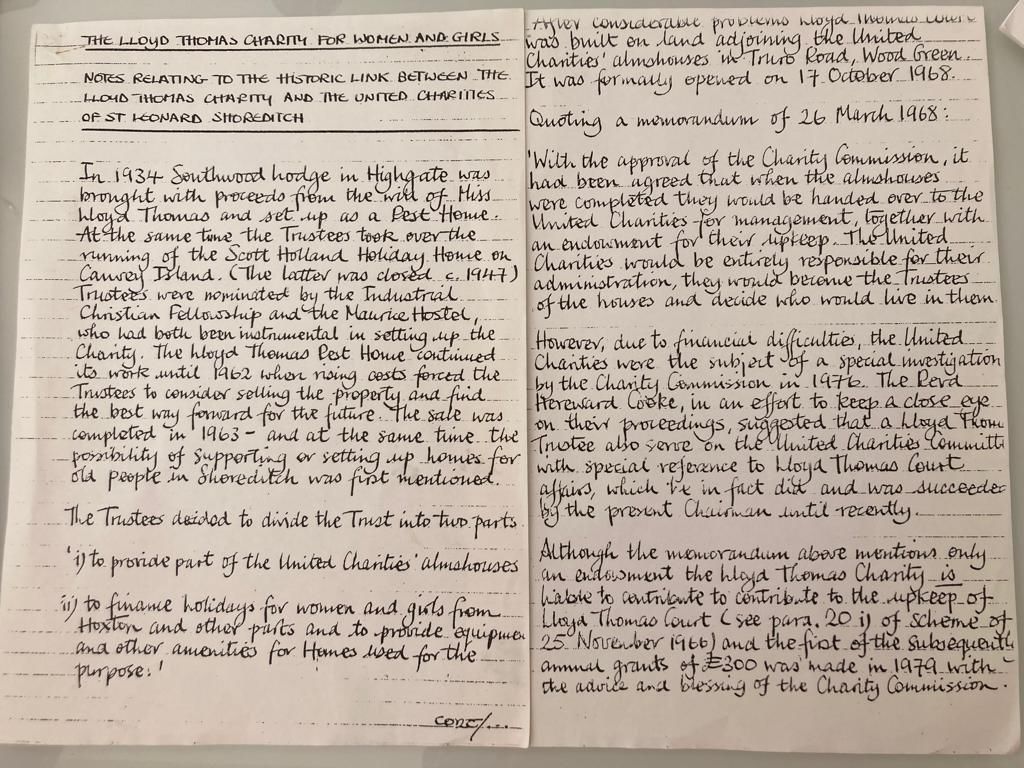 THE LLOYD THOMAS CHARITY FOR WOMEN AND GIRLS
NOTES RELATING TO THE HISTORIC LINK BETWEEN THE
LLOYD THOMAS CHARITY AND THE UNITED CHARITIES
OF ST LEONARD SHOREDITCH
In 1934 Southwood Lodge in Highgate was
brought with proceeds from the will of Miss
Lloyd Thomas and set up as a Rest Home.
At the same time the Trustees took over the
running of the Scott Holland Holiday Home on
Canvey Island. (The latter was closed c. 1947)
Trustees were nominated by the Industrial
Christian Fellowship and the Maurice Hostel,
who had both been instrumental in setting up the
Charity. The Lloyd Thomas Rest Home continued
its work until 1962 when rising costs forced the
Trustees to consider selling the property and find
the best way forward for the future. The sale was
completed in 1963 - and at the same time the
possibility of supporting or setting up homes for
old people in Shoreditch was first mentioned.
The Trustees decided to divide the Trust into two parts
'i) to provide part of the United Charities' almshouses
ii) to finance holidays for women and girls from
Hoxton and other parts and to provide equipmen
and other amenities for Homes used for the
purpose.'
CONT/...
After considerable problems Lloyd Thomas Court
was built on land adjoining the United
Charities' almshouses in Truro Road, Wood Green.
It was formally opened on 17 October 1968.
Quoting a memorandum of 26 March 1968:
'With the approval of the Charity Commission, it
had been agreed that when the almshouses
were completed they would be handed over to the
United Charities for management, together with
an endowment for their upkeep. The United
Charities would be entirely responsible for their
administration, they would become the Trustees
of the houses and decide who would live in them
However, due to financial difficulties, the United
Charities were the subject of a special investigation
by the Charity Commission in 1976. The Revd
Hereward Cooke, in an effort to keep a close eye
on their proceedings, suggested that a Lloyd Thom
Trustee also serve on the United Charities Committe
with special reference to Lloyd Thomas Court
affairs, which he in fact did and was succeeded
by the present Chairman until recently.
Although the memorandum above mentions only
an endowment the Lloyd Thomas Charity is
liable to contribute to contribute to the upkeep of
Lloyd Thomas Court (see para. 20 i) of scheme of
25 November 1966) and the first of the subsequently
annual grants of £300 was made in 1979 with
the advice and blessing of the Charity Commission.